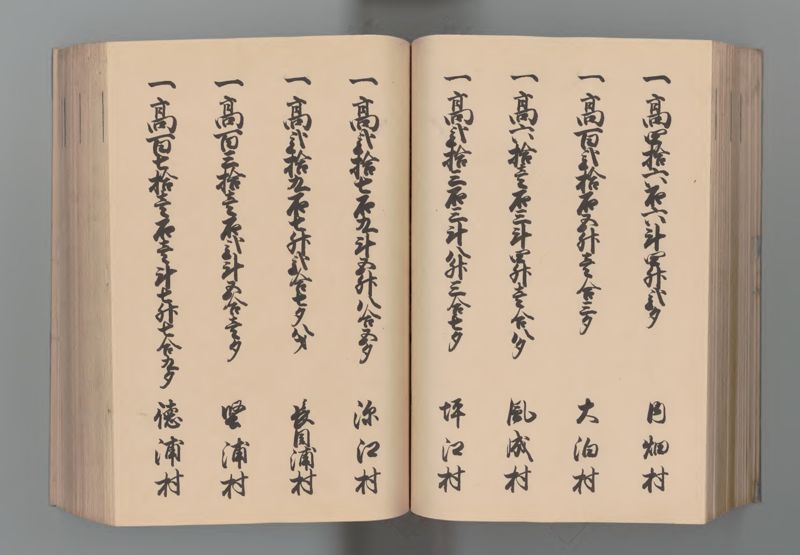 一高四拾六石六斗四升弐夕 月畑村
一高百弐拾石五升壱合三夕 大泊村
一高六拾壱石三斗四升壱合八夕 風成村
一高弐拾三石三斗八升三合七夕 坪江村
一高弐拾七石九斗五升八合五夕 深江村
一高弐拾九石七升弐合七夕八才 長目浦村
一高百三拾壱石弐斗五合壱夕 堅浦村
一高百七拾壱石壱斗七升七合九夕 徳浦村